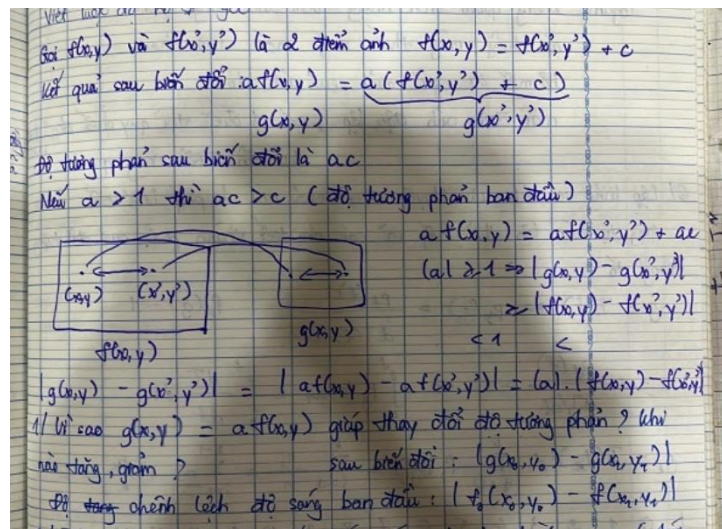 Gọi f(x,y) và f(x',y') là 2 điểm ảnh f(x,y) = f(x',y') + c
Kết quả sau biến đổi : af(x,y) = a(f(x',y') + c)
g(x,y) g(x',y')
Độ tương phản sau biến đổi là ac
Nếu a > 1 thì ac > c (độ tương phản ban đầu)
a f(x,y) = af(x',y') + ac
(x,y) (x',y') |a| ≥ 1 => |g(x,y) - g(x',y')|
≥ |f(x,y) - f(x',y')|
g(x,y) < 1 <
f(x,y)
|g(x,y) - g(x',y')| = | af(x,y) - af(x',y')| = |a|.|f(x,y) - f(x',y')|
1/ Vì sao g(x,y) = a f(x,y) giúp thay đổi độ tương phản ? Khi
nào tăng, giảm ? sau biến đổi : |g(x₀,y₀) - g(x₁,y₁)|
Độ chênh lệch độ sáng ban đầu : | f(x₀,y₀) - f(x₁,y₁)|